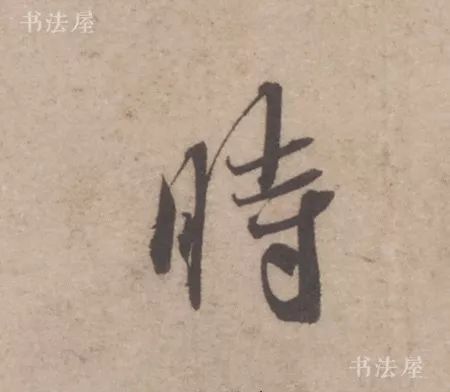 书法屋
時
书法屋